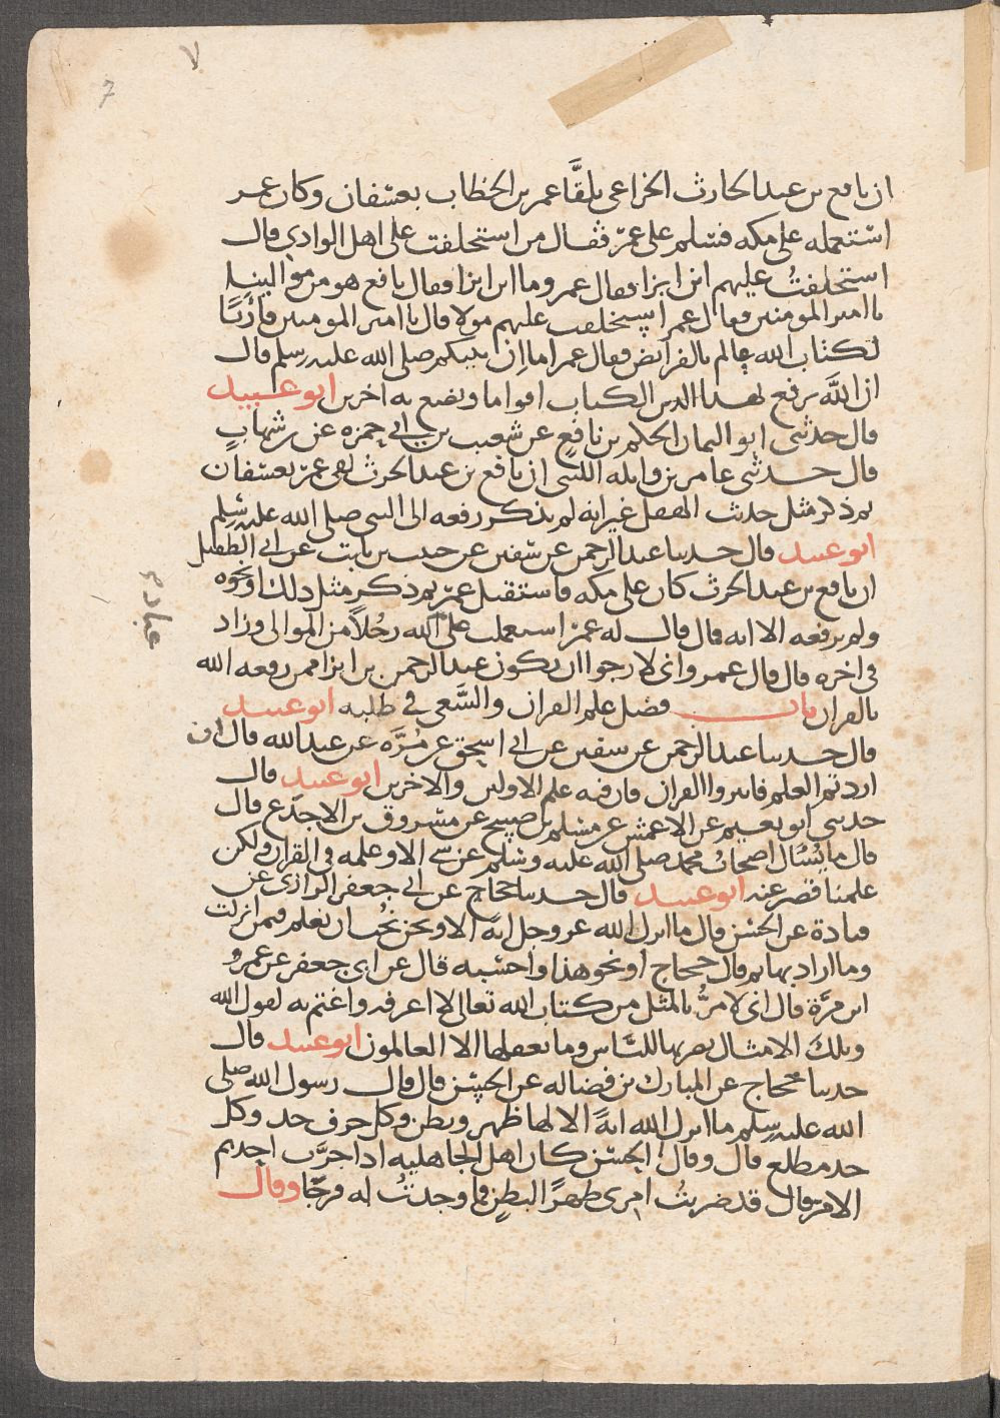 ٧
7
ان نافع بن عبد الحارث الخزاعي تلقَّا عمر بن الخطاب بعسفان وكان عمر
استعمله على مكه فسلم على عمر فقال من استخلفت على اهل الوادي قال
استخلفتُ عليهم ابن ابزا فقال عمر وما ابن ابزا فقال نافع هو من موالينا
يا امير المومنين فقال عمر استخلفت عليهم مولا قال يا امير المومنين قارئا
لكتاب الله عالم بالفرائض فقال عمر اما ان نبيكم صلى الله عليه وسلم قال
ان الله يرفع بهذا الدين الكتاب اقواما ويضع به اخرين ابو عبيد
قال حدثنى ابو اليمان الحكم بن نافع عن شعيب بن ابي حمزه عن بن شهاب
قال حدثنى عامر بن واثله الليثى ان نافع بن عبد الحرث لقى عمر بعسفان
ثم ذكر مثل حديث المفضل غير انه لم يذكر رفعه الى النبى صلى الله عليه وسلم
ابو عبيد قال حدثنا عبد الرحمن عن سفين عن حبيب بن ثابت عن ابي الطفيل
ان نافع بن عبد الحرث كان على مكه فاستقبل عمر ثم ذكر مثل ذلك او نحوه
ولم يرفعه الا انه قال قال له عمر استعملت على اهل الله رجُلاً من الموالى وزاد
فى اخره قال قال عمر وانى لارجوا ان يكون عبد الرحمن بن ابزا ممن رفعه الله
بالقران باب فضل علم القران والسَّعى في طلبه ابو عبيد
قال حدثنا عبد الرحمن عن سفين عن ابي اسحق عن مُرَّه عن عبد الله قال اذا
اردتم العلم فاثيروا القران فان فيه علم الاولين والاخرين ابو عبيد قال
حدثنى ابو نعيم عن الاعمش عن مسلم بن صبيح عن مسروق بن الاجدَع قال
قال ما يُسْال اصحابُ محمد صلى الله عليه وسلم عن شي الا وعلمه فى القران ولكن
علمنا قصر عنه ابو عبيد قال حدثنا حجاج عن ابي جعفر الرازى عن
قتادة عن الحسن قال ما انزل الله عز وجل ايه الا وهو يحب ان تعلم فيمن انزلت
وما اراد بها ثم قال حجاج او نحو هذا واحسبه قال عن ابى جعفر عن عمرو
ابن مرَّة قال انى لامرُّ بالمثل من كتاب الله تعالى لا اعرفه فاغتم به لقول الله
وتلك الامثال نضربها للناس وما يعقلها الا العالمون ابو عبيد قال
حدثنا حجاج عن المبارك بن فضاله عن الحسن قال قال رسول الله صلى
الله عليه وسلم ما انزل الله ايةً الا لها ظهر وبطن وكل حرف حد وكل
حد مطلع قال وقال الحسن كان اهل الجاهليه اذا حرَّب احدهم
الامر قال قد ضربتُ امرى ظهرًا لبطن فما وجدتُ له فرجًا وقال